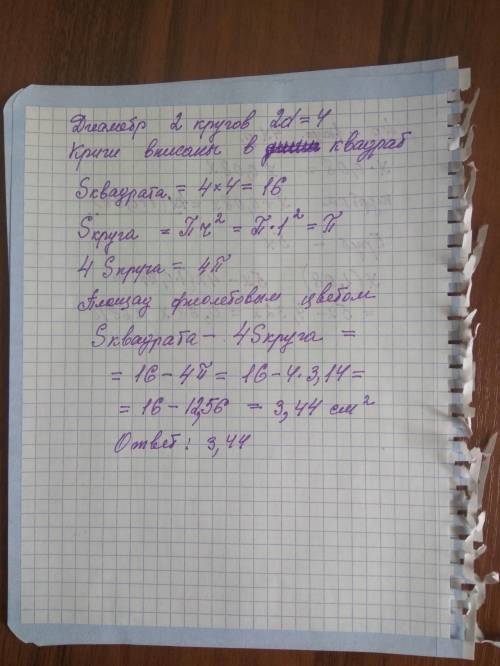 Диаметр 2 кругов 2d = 4
Круги вписаны в квадрат
Sквадрата = 4 × 4 = 16
Sкруга = πr² = π · 1² = π
4 Sкруга = 4π
Площад фиолетовым цветом
Sквадрата – 4Sкруга =
= 16 – 4π = 16 – 4 · 3,14 =
= 16 – 12,56 = 3,44 см²
Ответ: 3,44